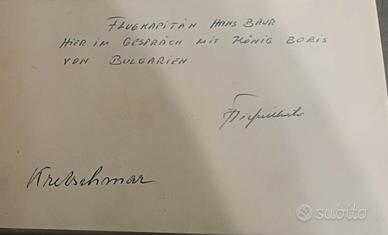 FLUGKAPITÄN HANS BAUR
HIER IM GESPRÄCH MIT KÖNIG BORIS
VON BULGARIEN
Kretschmar
subito